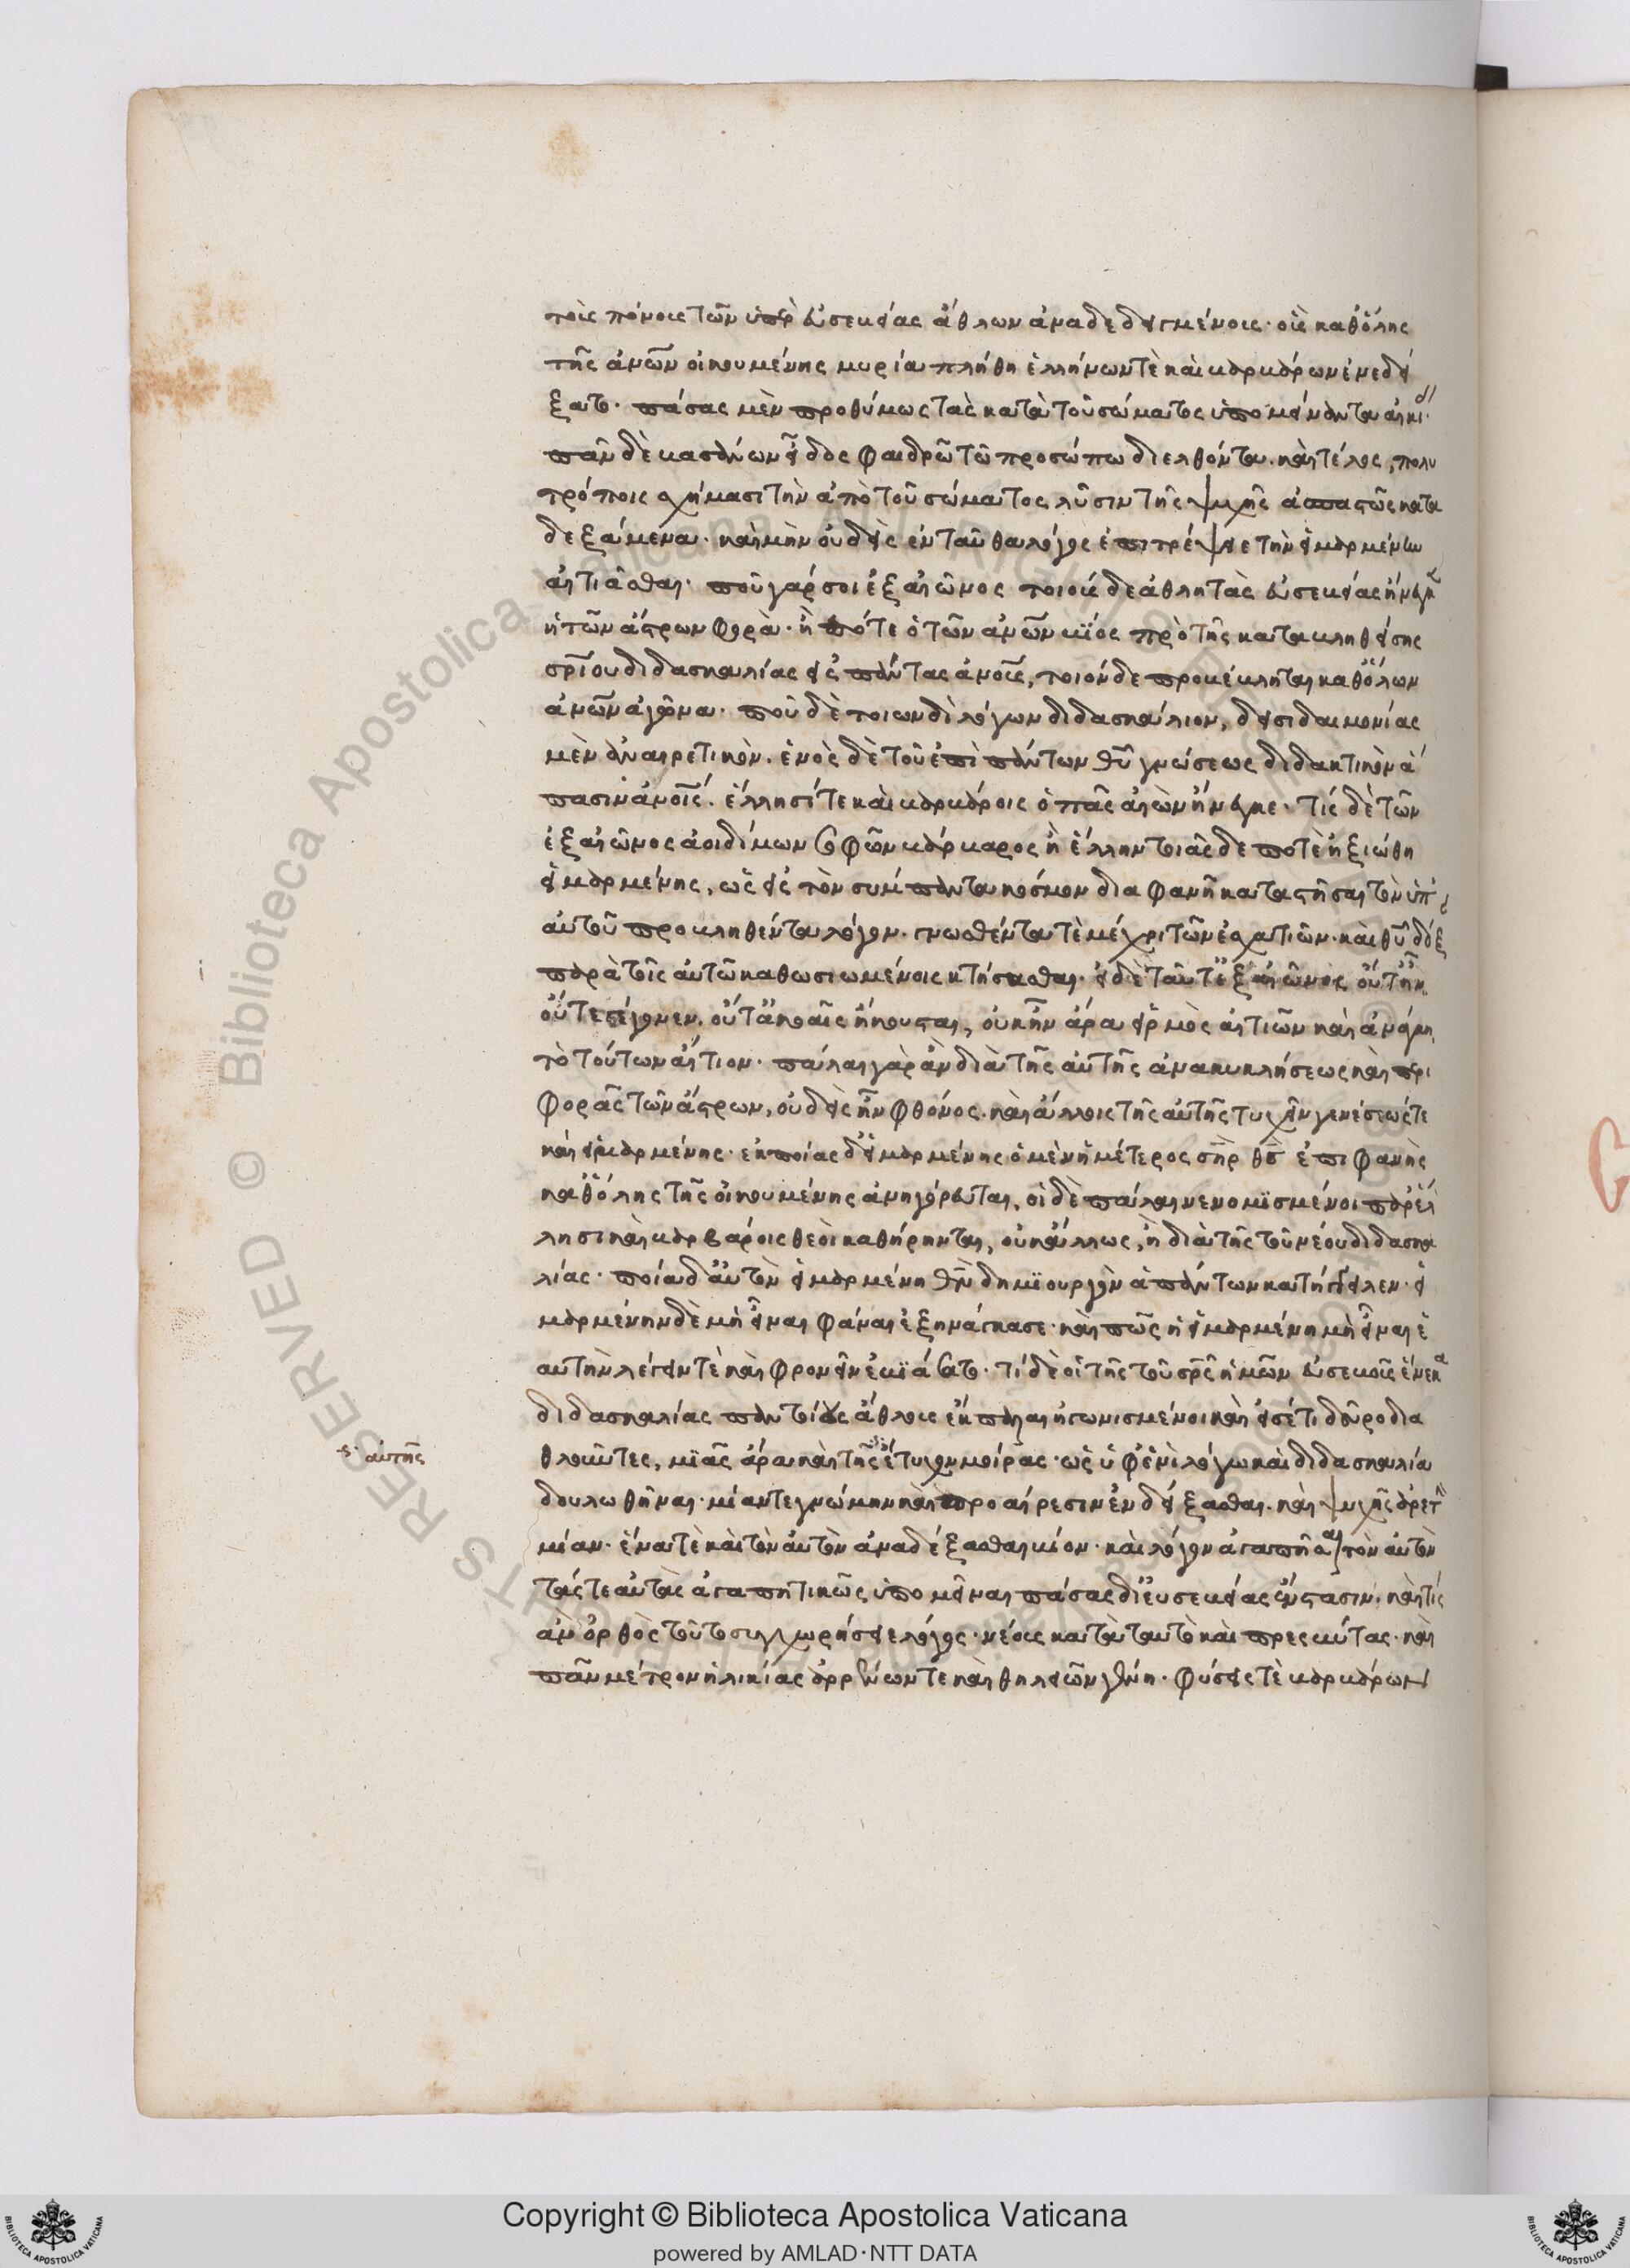 τοῖς πόνοις τῶν ὑπὲρ εὐσεβείας ἄθλων ἀναδεδειγμένοις· οἷς καθ' ὅλης
τῆς ἀνῶν οἰκουμένης μυρία πλήθη ἑλλήνων τὲ καὶ βαρβάρων ἐνεδεί
ξατο· πάσας μὲν προθύμως τὰς κατὰ τοῦ σώματος ὑπομείναντα αἰκί
πᾶν δὲ βασάνων εἶδος φαιδρῶ τῶ προσώπω διελθόντα. καὶ τέλος, πολυ
τρόποις σχήμασι τὴν ἀπὸ τοῦ σώματος λῦσιν τῆς ψυχῆς ἀσπαστῶς κατα
δεξάμενα· καὶ μὴν οὐδεὶς ἐνταῦθα λόγος ἐπιτρέψειε τὴν εἱμαρμένην
αἰτιᾶσθαι· ποῦ γάρ σοι ἐξ αἰῶνος τοιούσδε ἀθλητὰς εὐσεβείας ἤνεγκ
ἡ τῶν ἄστρων φορὰ· ἢ πότε ὁ τῶν ἀνῶν βίος πρὸ τῆς καταβληθείσης
σρίου διδασκαλίας εἰς πάντας ἀνους, τοιόνδε προβέβληται καθ' ὅλων
ἀνῶν ἀγῶνα· ποῦ δὲ τοιωνδὶ λόγων διδασκάλιον, δεισιδαιμονίας
μὲν ἀναιρετικὸν. ἑνὸς δὲ τοῦ ἐπὶ πάντων θυ γνώσεως διδακτικὸν ἅ
πασιν ἀνοις. ἕλλησί τε καὶ βαρβάροις ὁ πᾶς αἰὼν ἤνεγκε· τίς δὲ τῶν
ἐξ αἰῶνος ἀοιδίμων σοφῶν βάρβαρος ἢ ἕλλην τοιᾶσδε ποτὲ ἠξιώθη
εἱμαρμένης, ὡς εἰς τὸν σύμπαντα κόσμον διαφανῆ καταστῆσαι τὸν ὑπ'
αὐτοῦ προβληθέντα λόγον. γνωσθέντα τὲ μέχρι τῶν ἐσχατιῶν· καὶ θυ δόξ
παρὰ τοῖς αὐτῶ καθωσιωμένοις κτήσασθαι· εἰ δὲ ταῦτ' ἐξ αἰῶνος οὔτ' ἦν
οὔτε γέγονεν. οὔτ' ἀκοαῖς ἤκουσται, οὐκ ἦν ἄρα εἱρμὸς αἰτιῶν καὶ ἀνάγκη
τὸ τούτων αἴτιον· πάλαι γὰρ ἂν διὰ τῆς αὐτῆς ἀνακυκλήσεως καὶ περι
φορᾶς τῶν ἄστρων, οὐδεὶς ἦν φθόνος. καὶ ἄλλοις τῆς αὐτῆς τυχεῖν γενέσεώς τε
καὶ εἱμαρμένης· ἐκ ποίας δ' εἱμαρμένης ὁ μὲν ἡμέτερος σηρ θς ἐπιφανὴς
καθ' ὅλης τῆς οἰκουμένης ἀνηγόρευται, οἱ δὲ πάλαι νενομϊσμένοι παρ' ἕλ
λησι καὶ βαρβάροις θεοὶ καθήρηνται, οὐκ ἄλλως, ἢ διὰ τῆς τοῦ νέου διδασκα
λίας· ποία δ' αὐτὸν εἱμαρμένη θν δημϊουργὸν ἁπάντων κατήγγειλεν· εἱ
μαρμένην δὲ μὴ εἶναι φάναι ἐξηνάγκασε· καὶ πῶς ἡ εἱμαρμένη μὴ εἶναι ἑ
αυτὴν λέγειν τὲ καὶ φρονεῖν ἐβϊάσατο· τί δὲ οἱ τῆς τοῦ σρς ἡμῶν εὐσεβοῦς ἕνεκα
διδασκαλίας παντοίους ἄθλους ἔκπαλαι ἠγωνισμένοι καὶ εἰσέτι δεῦρο δια
θλοῦντες, μϊᾶς ἄρα καὶ τῆς ἔτυχον μοίρας· ὡς ὑφ' ἑνὶ λόγω καὶ διδασκαλία
ς· αὐτῆς
δουλωθῆναι· μίαν τε γνώμην καὶ προαίρεσιν ἐνδείξασθαι. καὶ ψυχῆς ἀρετὴ
μίαν. ἕνα τὲ καὶ τὸν αὐτὸν ἀναδέξασθαι βίον· καὶ λόγον ἀγαπῆσαι τὸν αὐτὸν
τάς τε αὐτὰς ἀγαπητικῶς ὑπομεῖναι πάσας δι' εὐσεβείας ἔνστασιν. καὶ τίς
ἂν ὀρθὸς τοῦτο συγχωρήσειε λόγος· νέους κατὰ ταυτὸ καὶ πρεσβύτας· καὶ
πᾶν μέτρον ἡλικίας ἀρρένων τε καὶ θηλειῶν γένη· φύσεις τὲ βαρβάρων